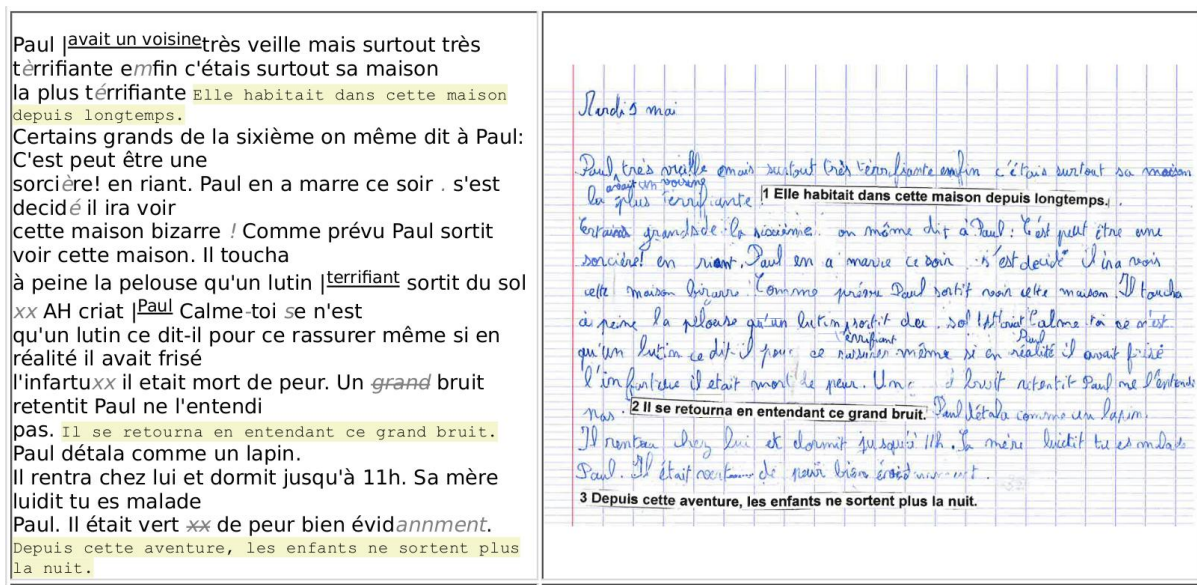 Paul |avait un voisinetrès veille mais surtout très
tèrrifiante emfin c'étais surtout sa maison
la plus térrifiante Elle habitait dans cette maison
depuis longtemps.
Certains grands de la sixième on même dit à Paul:
C'est peut être une
sorcière! en riant. Paul en a marre ce soir . s'est
decidé il ira voir
cette maison bizarre ! Comme prévu Paul sortit
voir cette maison. Il toucha
à peine la pelouse qu'un lutin |terrifiant sortit du sol
xx AH criat |Paul Calme-toi se n'est
qu'un lutin ce dit-il pour ce rassurer même si en
réalité il avait frisé
l'infartuxx il etait mort de peur. Un grand bruit
retentit Paul ne l'entendi
pas. Il se retourna en entendant ce grand bruit.
Paul détala comme un lapin.
Il rentra chez lui et dormit jusqu'à 11h. Sa mère
luidit tu es malade
Paul. Il était vert xx de peur bien évidannment.
Depuis cette aventure, les enfants ne sortent plus
la nuit.
Mardi 5 mai
Paul, très vieille mais surtout très tèrrifiante enfin c'étais surtout sa maison
avait un voisine
la plus terrifiante 1 Elle habitait dans cette maison depuis longtemps.
Certains grands de la sixième on même dit à Paul : C'est peut être une
sorcière! en riant. Paul en a marre ce soir s'est decidé il ira voir
cette maison bizarre. Comme prévu Paul sortit voir cette maison. Il toucha
à peine la pelouse qu'un lutin sortit du sol Calme toi ce n'est
terrifiant Paul
qu'un lutin ce dit-il pour ce rassurer même si en réalité il avait frisé
l'infartue il etait mort de peur. Un bruit retentit Paul ne l'entendi
pas. 2 Il se retourna en entendant ce grand bruit. Paul détala comme un lapin.
Il rentra chez lui et dormit jusqu'à 11h. Sa mère luidit tu es malade
Paul. Il était vert de peur bien
3 Depuis cette aventure, les enfants ne sortent plus la nuit.